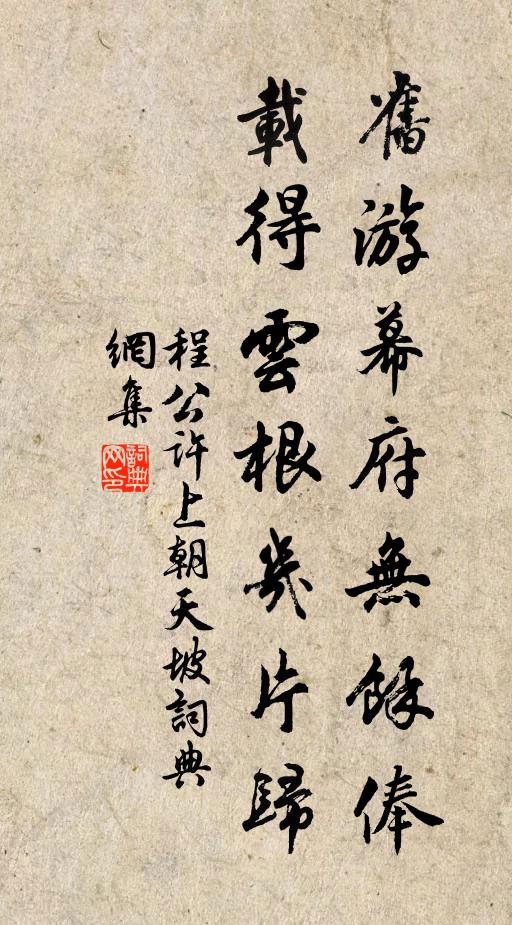 舊游幕府無餘俸
載得雲根幾片歸
程公許上朝天坡詞典
網集
詞典網印